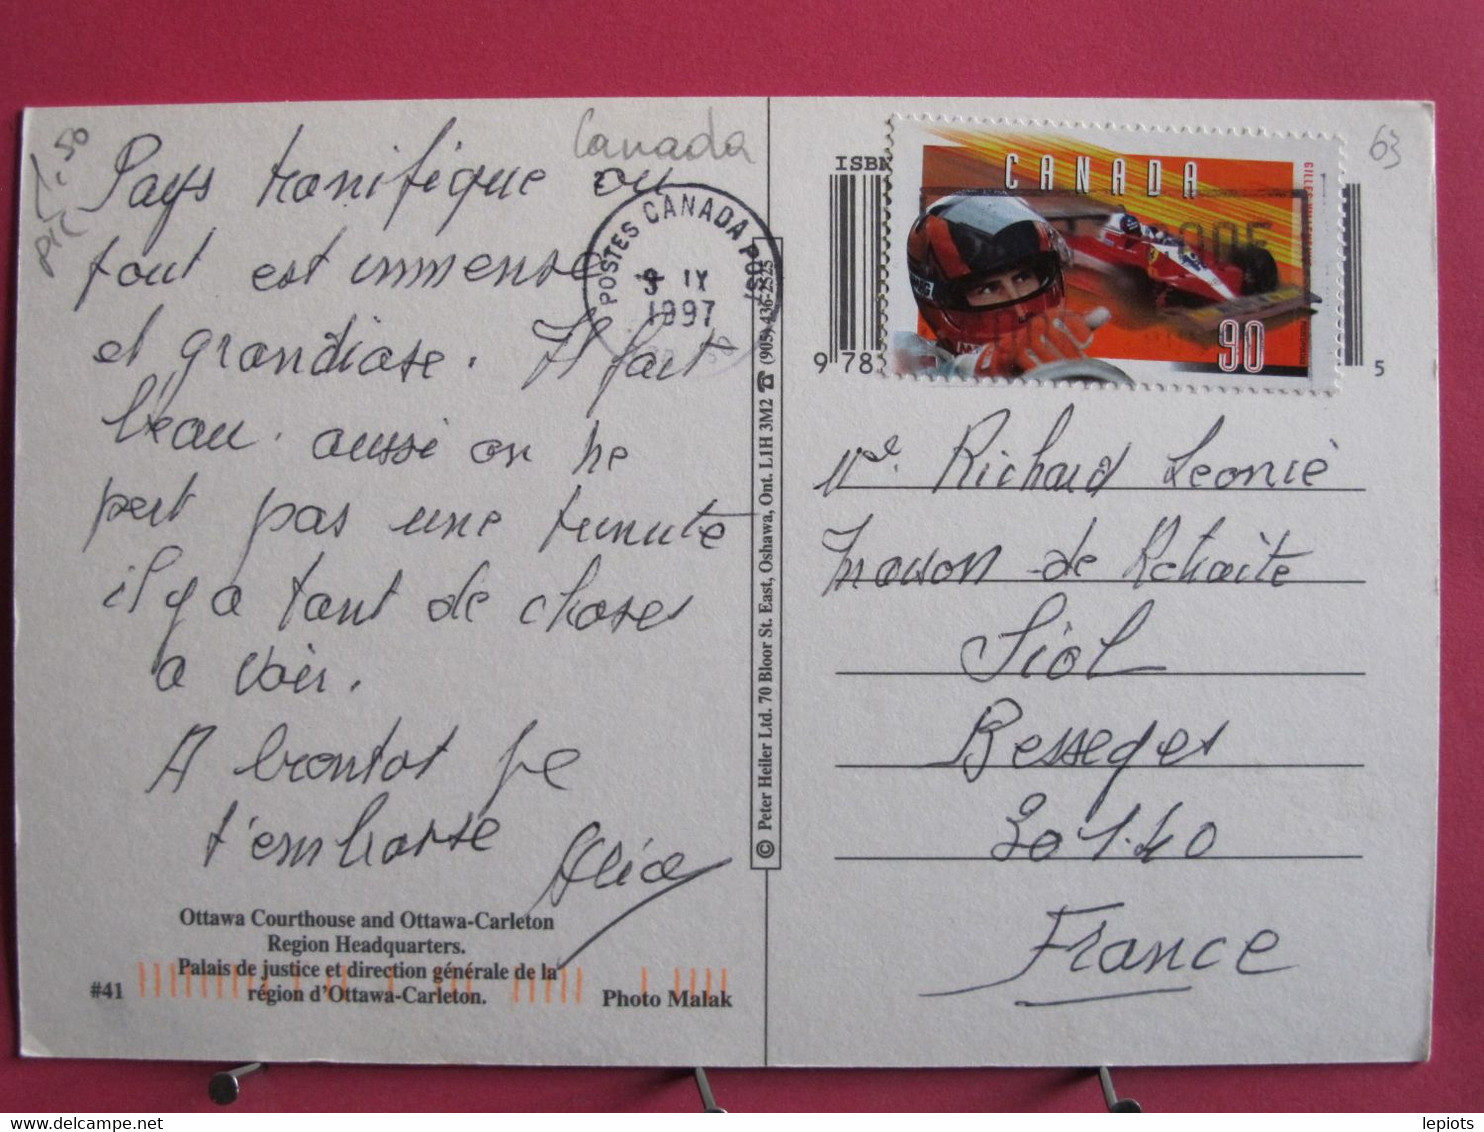 Canada
1.50
63
Pays manifique ou
tout est immense
et grandiose. Il fait
beau. aussi on ne
pert pas une minute
il y a tant de choses
a voir.
A bientot je
t'embrasse
Alice
POSTES CANADA POST
9 IX
1997
ISBN
9 78
5
CANADA
90
Me. Richard Leonie
Maison de Retraite
Besseges
30140
France
© Peter Heiler Ltd. 70 Bloor St. East, Oshawa, Ont. L1H 3M2 ☎ (905) 436-2525
Ottawa Courthouse and Ottawa-Carleton
Region Headquarters.
Palais de justice et direction générale de la
région d'Ottawa-Carleton.
#41
Photo Malak
lepiots
www.delcampe.net